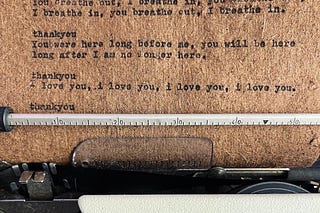 You breathe out, I breathe in, you
I breathe in, you breathe out, I breathe in.
thankyou
You were here long before me, you will be here
long after I am no longer here.
thankyou
i love you, i love you, i love you, i love you.
thankyou
10 20 30 40 50